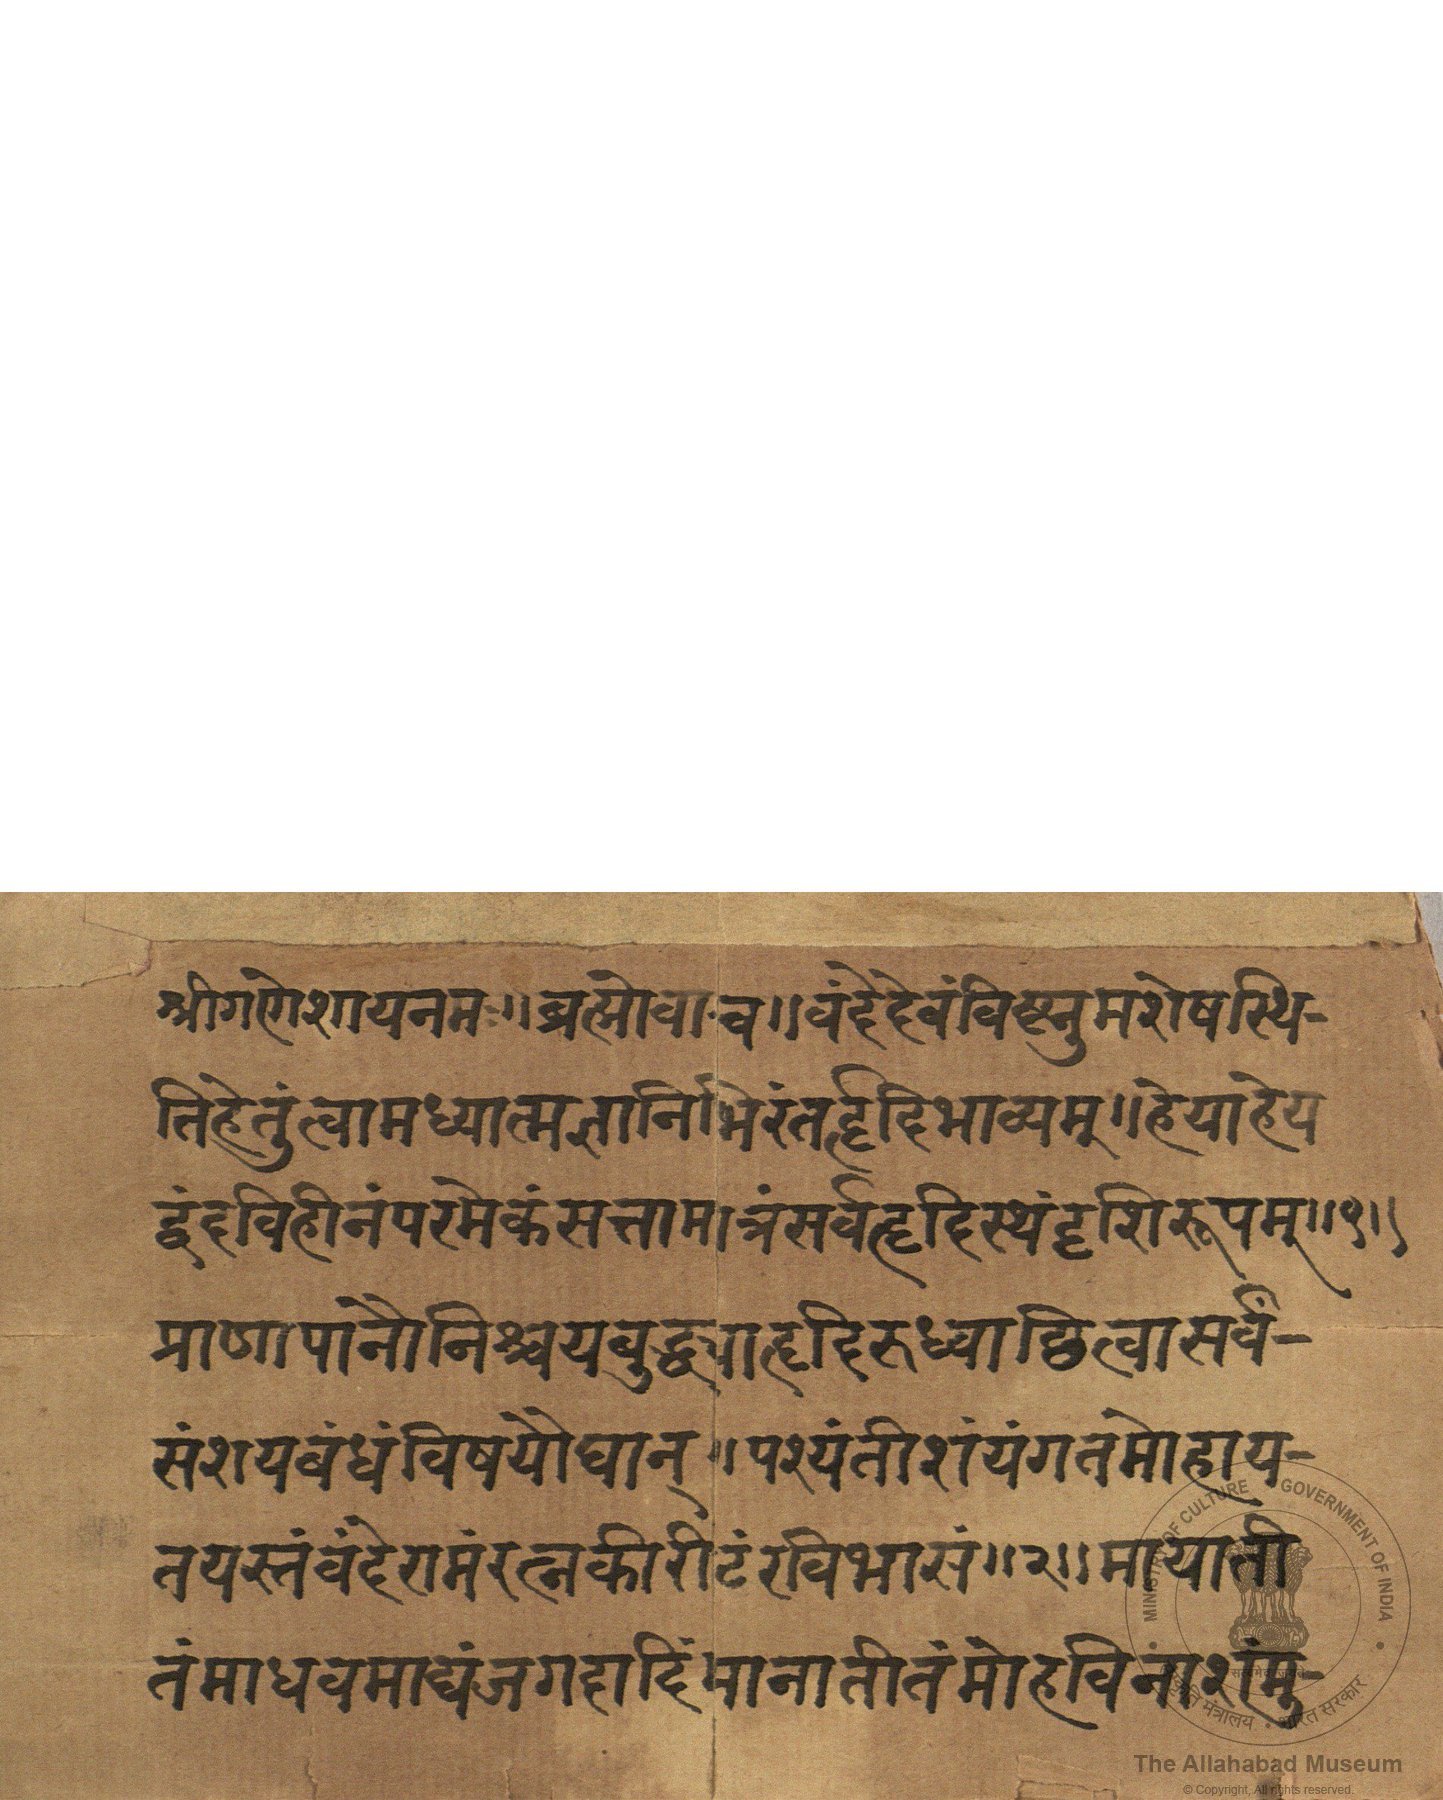 श्रीगणेशायनमः॥ब्रह्मोवाच॥वंदेदेवंविष्णुमशेषस्थि-
तिहेतुंत्वामध्यात्मज्ञानिभिरंतर्हृदिभाव्यम्॥हेयाहेय
द्वंदविहीनंपरमेकंसत्तामात्रंसर्वहृदिस्थंदृशिरूपम्॥१॥
प्राणापानौनिश्चयबुद्ध्याहृदिरूध्वाछित्वासर्वं-
संशयबंधंविषयौघान्॥पश्यंतीशंयंगतमोहाय-
तयस्तंवंदेरामंरत्नकीरीटंरविभासं॥२॥मायाती
तंमाधवमाद्यंजगदादिंमानातीतंमोहविनाशंमु-
MINISTRY OF CULTURE GOVERNMENT OF INDIA
सत्यमेव जयते
संस्कृति मंत्रालय • भारत सरकार
The Allahabad Museum
© Copyright, All rights reserved.